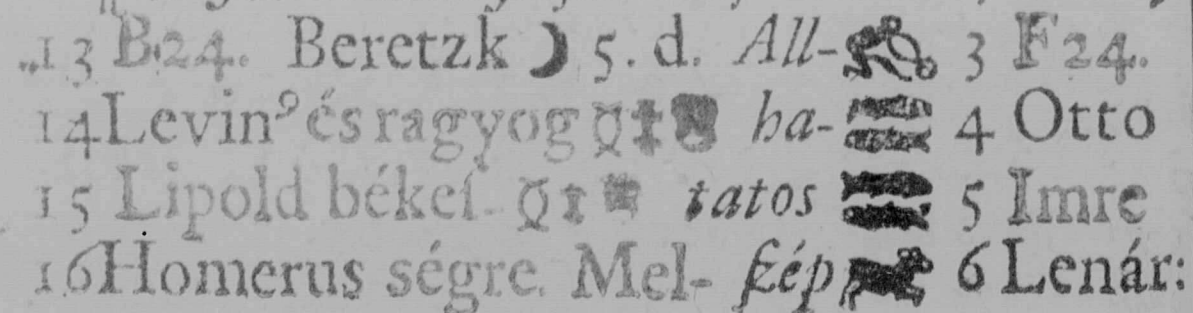 13 B24. Beretzk ☽ 5. d. All- 3 F24.
14 Levin⁹ és ragyog ha- 4 Otto
15 Lipold békeſ- tatos 5 Imre
16 Homerus ségre. Mel- kép 6 Lenár: